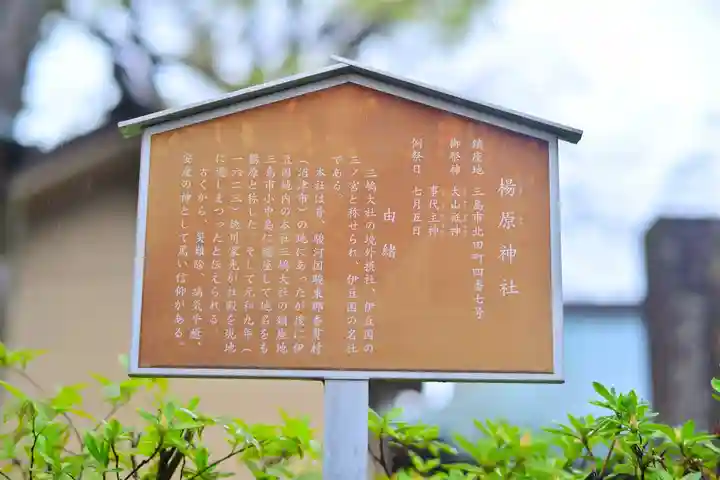 楊原神社
鎮座地　三島市北田町四番七号
御祭神　大山祇神
事代主神
例祭日　七月五日
由緒
三嶋大社の境外摂社、伊豆国の
三ノ宮と称せられ、伊豆国の名社
である。
本社は昔、駿河国駿東郡香貫村
（沼津市）の地にあったが後に伊
豆国域内の本社三嶋大社の鎮座地
三島市小中島に遷座して地名をも
楊原と称した　そして元和九年（
一六二三）徳川家光が社殿を現地
に遷しまつったと伝えられる
古くから、災難除、病気平癒、
安産の神として篤い信仰がある。